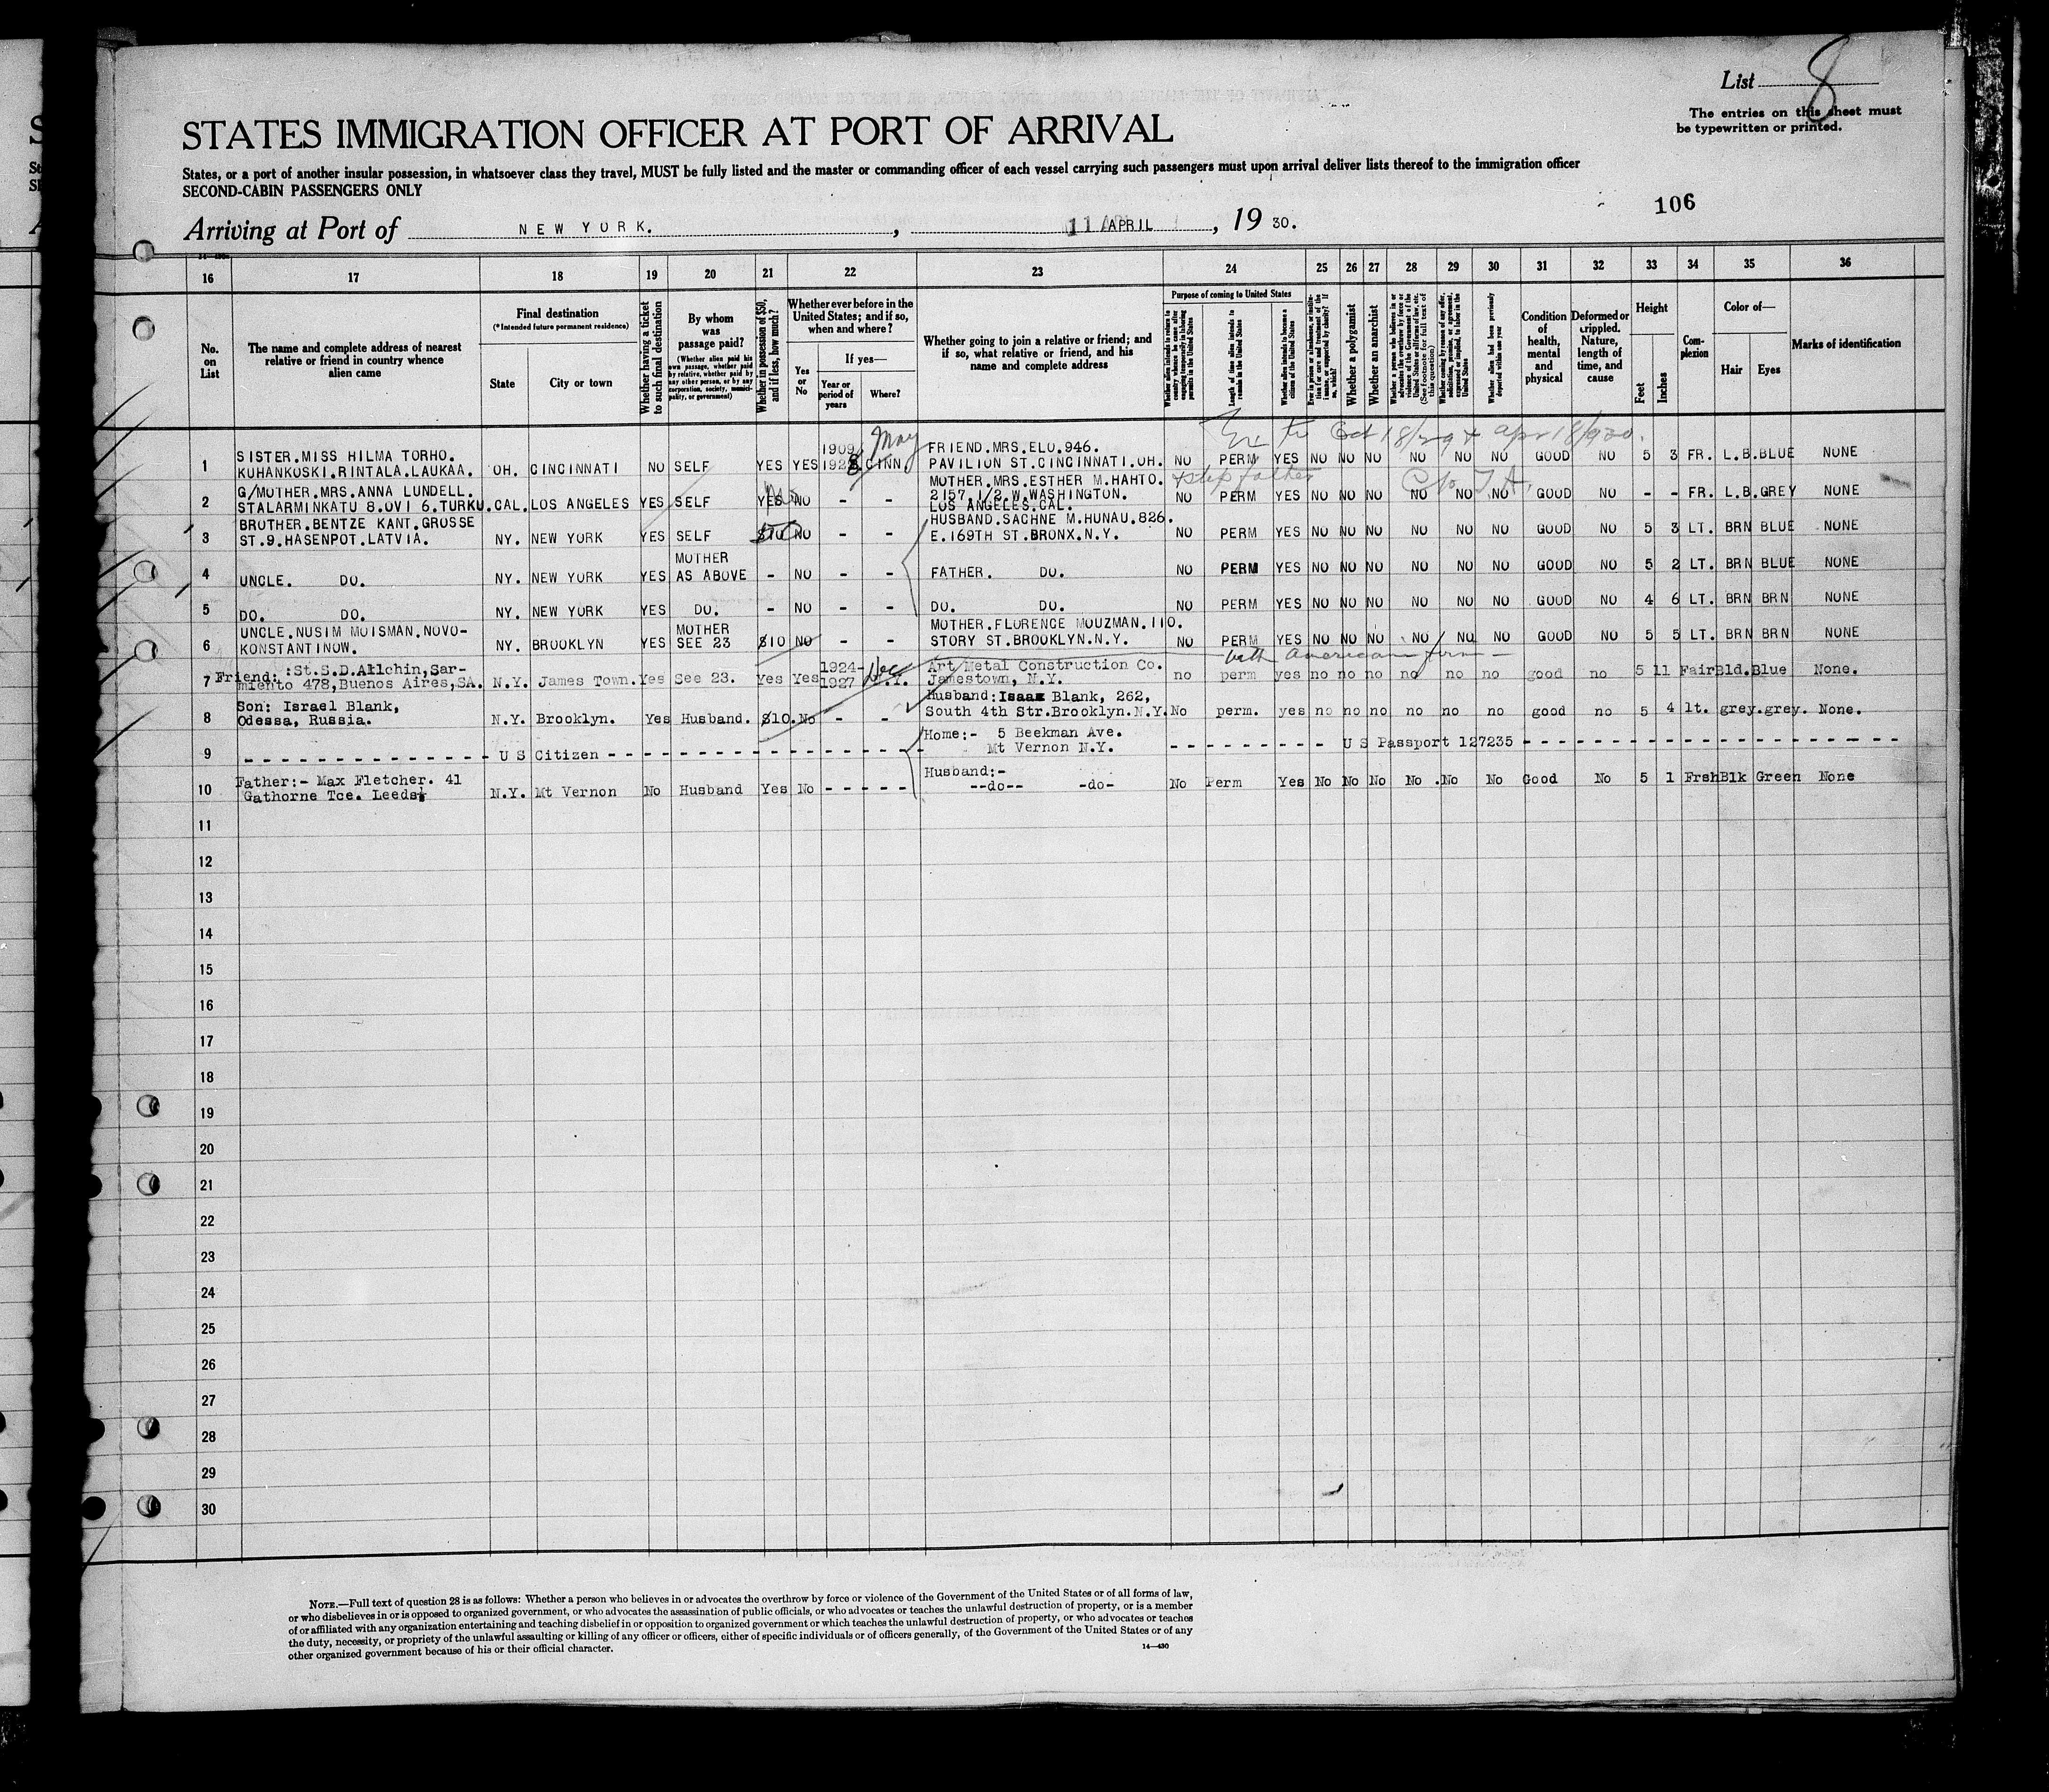 List 8
The entries on this sheet must
be typewritten or printed.
STATES IMMIGRATION OFFICER AT PORT OF ARRIVAL
States, or a port of another insular possession, in whatsoever class they travel, MUST be fully listed and the master or commanding officer of each vessel carrying such passengers must upon arrival deliver lists thereof to the immigration officer
SECOND-CABIN PASSENGERS ONLY
106
Arriving at Port of NEW YORK. , 11 APRIL , 19 30.
16 17 18 19 20 21 22 23 24 25 26 27 28 29 30 31 32 33 34 35 36
No. on List
The name and complete address of nearest relative or friend in country whence alien came
Final destination
(*Intended future permanent residence)
State
City or town
Whether having a ticket to such final destination
By whom was passage paid?
(Whether alien paid his own passage, whether paid by relative, whether paid by any other person, or by any corporation, society, municipality, or government)
Whether in possession of $50, and if less, how much?
Whether ever before in the United States; and if so, when and where?
Yes or No
If yes—
Year or period of years
Where?
Whether going to join a relative or friend; and if so, what relative or friend, and his name and complete address
Purpose of coming to United States
Length of time alien intends to remain in the United States
Whether alien intends to become a citizen of the United States
Whether a polygamist
Whether an anarchist
(See footnote for full text of this question)
Whether alien had been previously deported within one year
Condition of health, mental and physical
Deformed or crippled. Nature, length of time, and cause
Height
Feet
Inches
Complexion
Color of—
Hair
Eyes
Marks of identification
1 SISTER.MISS HILMA TORHO. KUHANKOSKI.RINTALA.LAUKAA. OH. CINCINNATI NO SELF YES YES 1909 1928 May CINN FRIEND.MRS.ELO.946. PAVILION ST.CINCINNATI.OH. NO PERM YES NO NO NO NO NO NO GOOD NO 5 3 FR. L.B. BLUE NONE
2 G/MOTHER.MRS.ANNA LUNDELL. STALARMINKATU 8.OVI 6.TURKU. CAL. LOS ANGELES YES SELF YES NO - - MOTHER.MRS.ESTHER M.HAHTO. 2157.1/2.W.WASHINGTON. LOS ANGELES.CAL. + step father NO PERM YES NO NO NO NO NO NO GOOD NO - - FR. L.B. GREY NONE
3 BROTHER.BENTZE KANT.GROSSE ST.9.HASENPOT.LATVIA. NY. NEW YORK YES SELF $10 NO - - HUSBAND.SACHNE M.HUNAU.826. E.169TH ST.BRONX.N.Y. NO PERM YES NO NO NO NO NO NO GOOD NO 5 3 LT. BRN BLUE NONE
4 UNCLE. DO. NY. NEW YORK YES MOTHER AS ABOVE - NO - - FATHER. DO. NO PERM YES NO NO NO NO NO NO GOOD NO 5 2 LT. BRN BLUE NONE
5 DO. DO. NY. NEW YORK YES DO. - NO - - DO. DO. NO PERM YES NO NO NO NO NO NO GOOD NO 4 6 LT. BRN BRN NONE
6 UNCLE.NUSIM MOISMAN.NOVO- KONSTANTINOW. NY. BROOKLYN YES MOTHER SEE 23 $10 NO - - MOTHER.FLORENCE MOUZMAN.110. STORY ST.BROOKLYN.N.Y. NO PERM YES NO NO NO NO NO NO GOOD NO 5 5 LT. BRN BRN NONE
with American firm
7 Friend: :St.S.D.Allchin,Sar- miento 478,Buenos Aires,SA. N.Y. James Town. Yes See 23. Yes Yes 1924- 1927 Dec N.Y. Art Metal Construction Co. Jamestown, N.Y. no perm yes no no no no no no good no 5 11 Fair Bld. Blue None.
8 Son: Israel Blank, Odessa, Russia. N.Y. Brooklyn. Yes Husband. $10. No - - Husband: Isaak Blank, 262, South 4th Str.Brooklyn.N.Y. No perm. yes no no no no no no good no 5 4 lt. grey. grey. None.
9 - - - US Citizen - - - Home:- 5 Beekman Ave. Mt Vernon N.Y. - - - US Passport 127235 - - -
10 Father:- Max Fletcher. 41 Gathorne Tce. Leeds. N.Y. Mt Vernon No Husband Yes No - - - - - Husband:- --do-- -do- No Perm Yes No No No No No No Good No 5 1 Frsh Blk Green None
11
12
13
14
15
16
17
18
19
20
21
22
23
24
25
26
27
28
29
30
NOTE.—Full text of question 28 is as follows: Whether a person who believes in or advocates the overthrow by force or violence of the Government of the United States or of all forms of law,
or who disbelieves in or is opposed to organized government, or who advocates the assassination of public officials, or who advocates or teaches the unlawful destruction of property, or is a member
of or affiliated with any organization entertaining and teaching disbelief in or opposition to organized government or which teaches the unlawful destruction of property, or who advocates or teaches
the duty, necessity, or propriety of the unlawful assaulting or killing of any officer or officers, either of specific individuals or of officers generally, of the Government of the United States or of any
other organized government because of his or their official character.
14—430